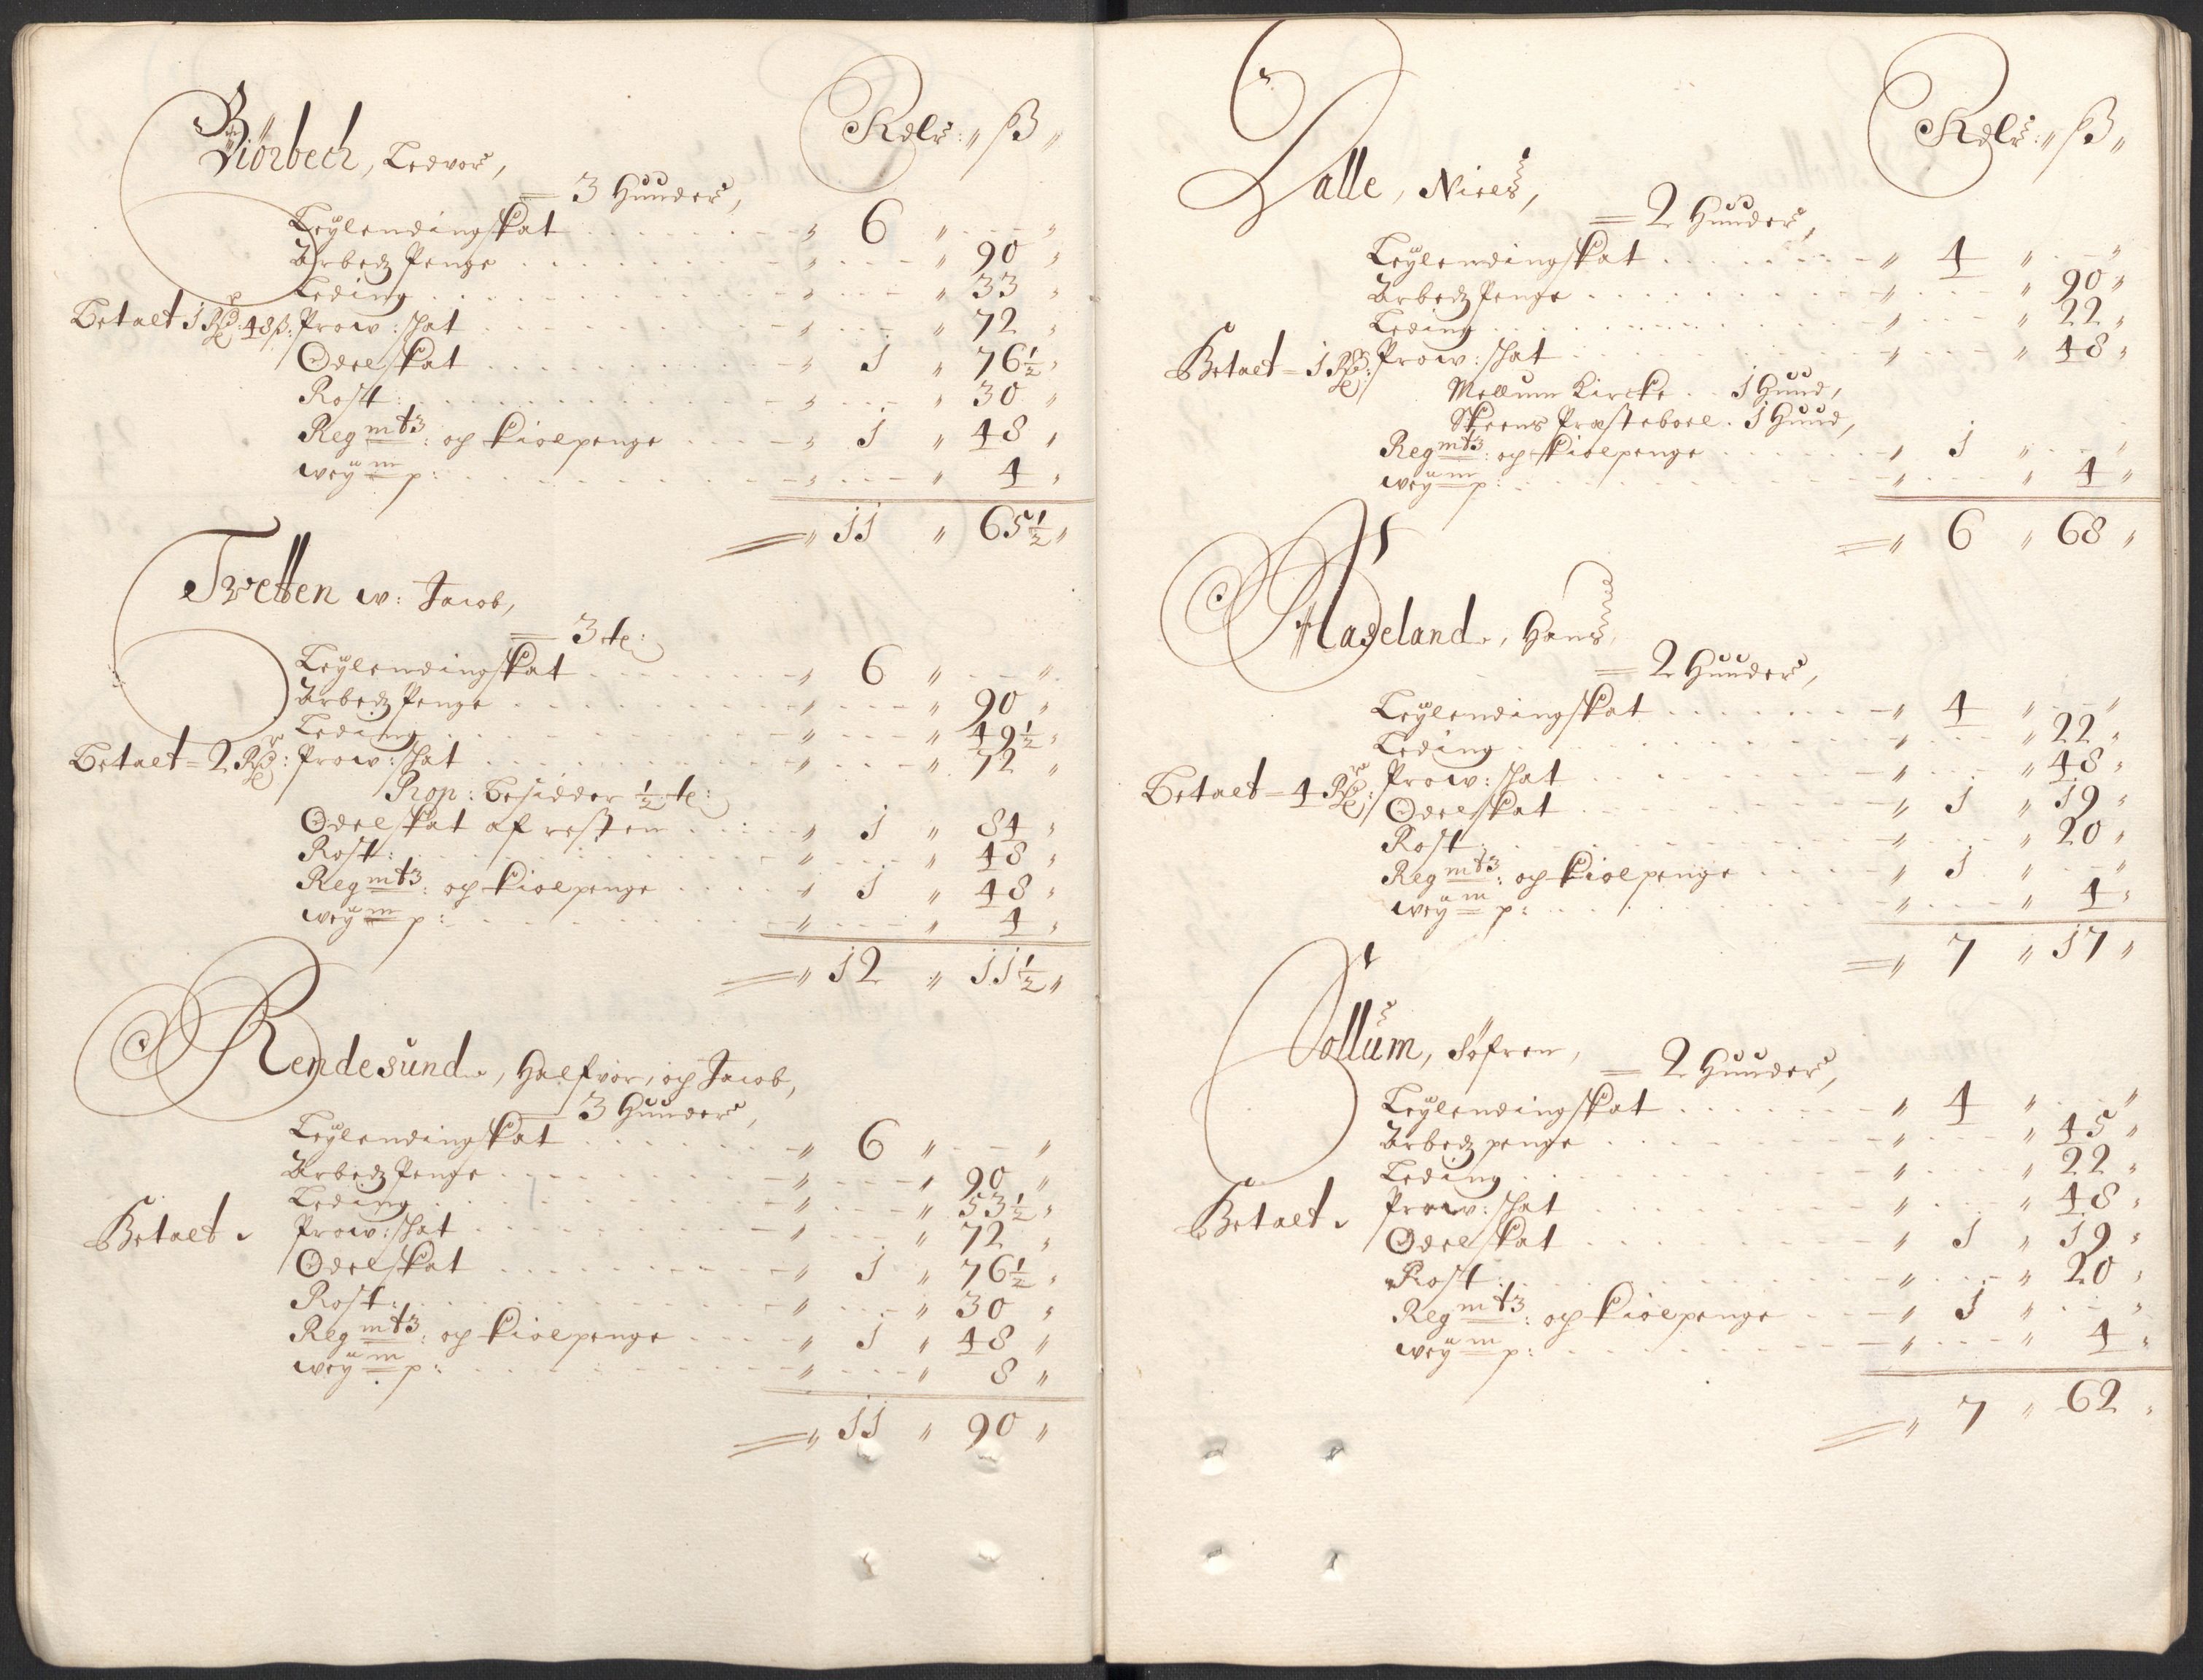 Rdlr: ß
Biörbech, Ledvor,
3 Hunder,
Leylendingskat 6
Arbedz Penge 90
Leding 33
Betaelt 1 Rdr 48 ß: Prow: skat 72
Odelskat 1 76½
Rost: 30
Reg mtz: og kioelpenge 1 48
wey m p: 4
11 65½
Tvetten w: Jacob,
3 te:
Leylendingskat 6
Arbedz Penge 90
Leding 49½
Betaelt 2 Rdr: Prow: skat 72
Prop: besidder ½ te:
Odelskat af resten 1 84
Rost: 48
Reg mtz: og kioelpenge 1 48
wey m p: 4
12 11½
Rendesund, Halfvor, og Jacob,
3 Hunder,
Leylendingskat 6
Arbedz Penge 90
Leding 53½
Betaelt Prow: skat 72
Odelskat 1 76½
Rost: 30
Reg mtz: og kioelpenge 1 48
wey m p: 8
11 90
Rdlr: ß
Dalle, Niels,
2 Hunder,
Leylendingskat 4
Arbedz Penge 90
Leding 22
Betaelt 1 Rdr: Prow: skat 48
Mellum Kircke 1 Hund,
Skeens Præsteboel. 1 Hund,
Reg mtz: og kioelpenge 1
wey m p: 4
6 68
Hageland, Hans,
2 Hunder,
Leylendingskat 4
Leding 22
Betaelt 4 Rdr: Prow: skat 48
Odelskat 1 19
Rost: 20
Reg mtz: og kioelpenge 1
wey m p: 4
7 17
Bollum, Söfren,
2 Hunder,
Leylendingskat 4
Arbedz penge 45
Leding 22
Betaelt Prow: skat 48
Odelskat 1 19
Rost: 20
Reg mtz: og kioelpenge 1
wey m p: 4
7 62